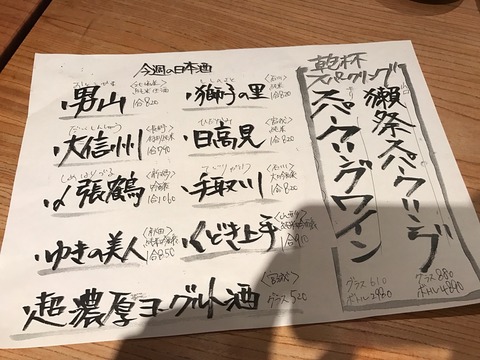 今週の日本酒
男山
1合820
獅子の里
〈石川〉
純米
1合820
だいしんしゅう
大信州
〈長野〉
1合940
ひたかみ
日高見
〈宮城〉
純米
1合820
しめはりつる
〆張鶴
〈新潟〉
吟醸
1合1060
てどりがわ
手取川
〈石川〉
大吟醸
1合820
ゆきの美人
〈秋田〉
1合850
くどき上手
〈山形〉
1合910
超濃厚ヨーグルト酒
〈宮城〉
グラス520
乾杯
スパークリング
獺祭スパークリング
グラス880
ボトル4840
スパークリングワイン
グラス610
ボトル2980